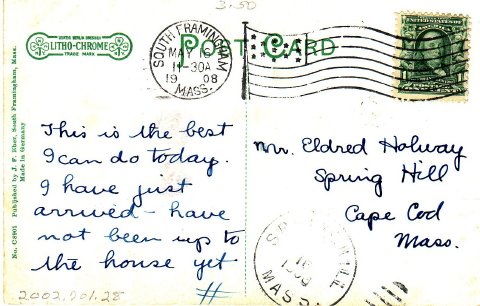 3.50
LEIPZIG BERLIN DRESDEN
LITHO-CHROME
TRADE MARK
POST CARD
SOUTH FRAMINGHAM
MAY 16
11-30A
1908
MASS.
UNITED STATES OF
This is the best
I can do today.
I have just
arrived - have
not been up to
the house yet
#
Mr. Eldred Holway
Spring Hill
Cape Cod
Mass.
SPRING HILL
MASS.
No. C8805 Published by J. F. Eber, South Framingham, Mass.
Made in Germany
2002.201.28